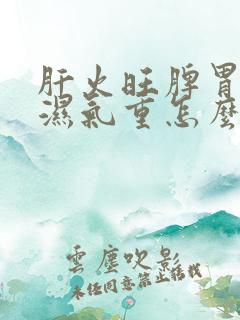 肝火旺脾胃
濕氣重怎麼
雲塵吹影
未经同意禁止搭我